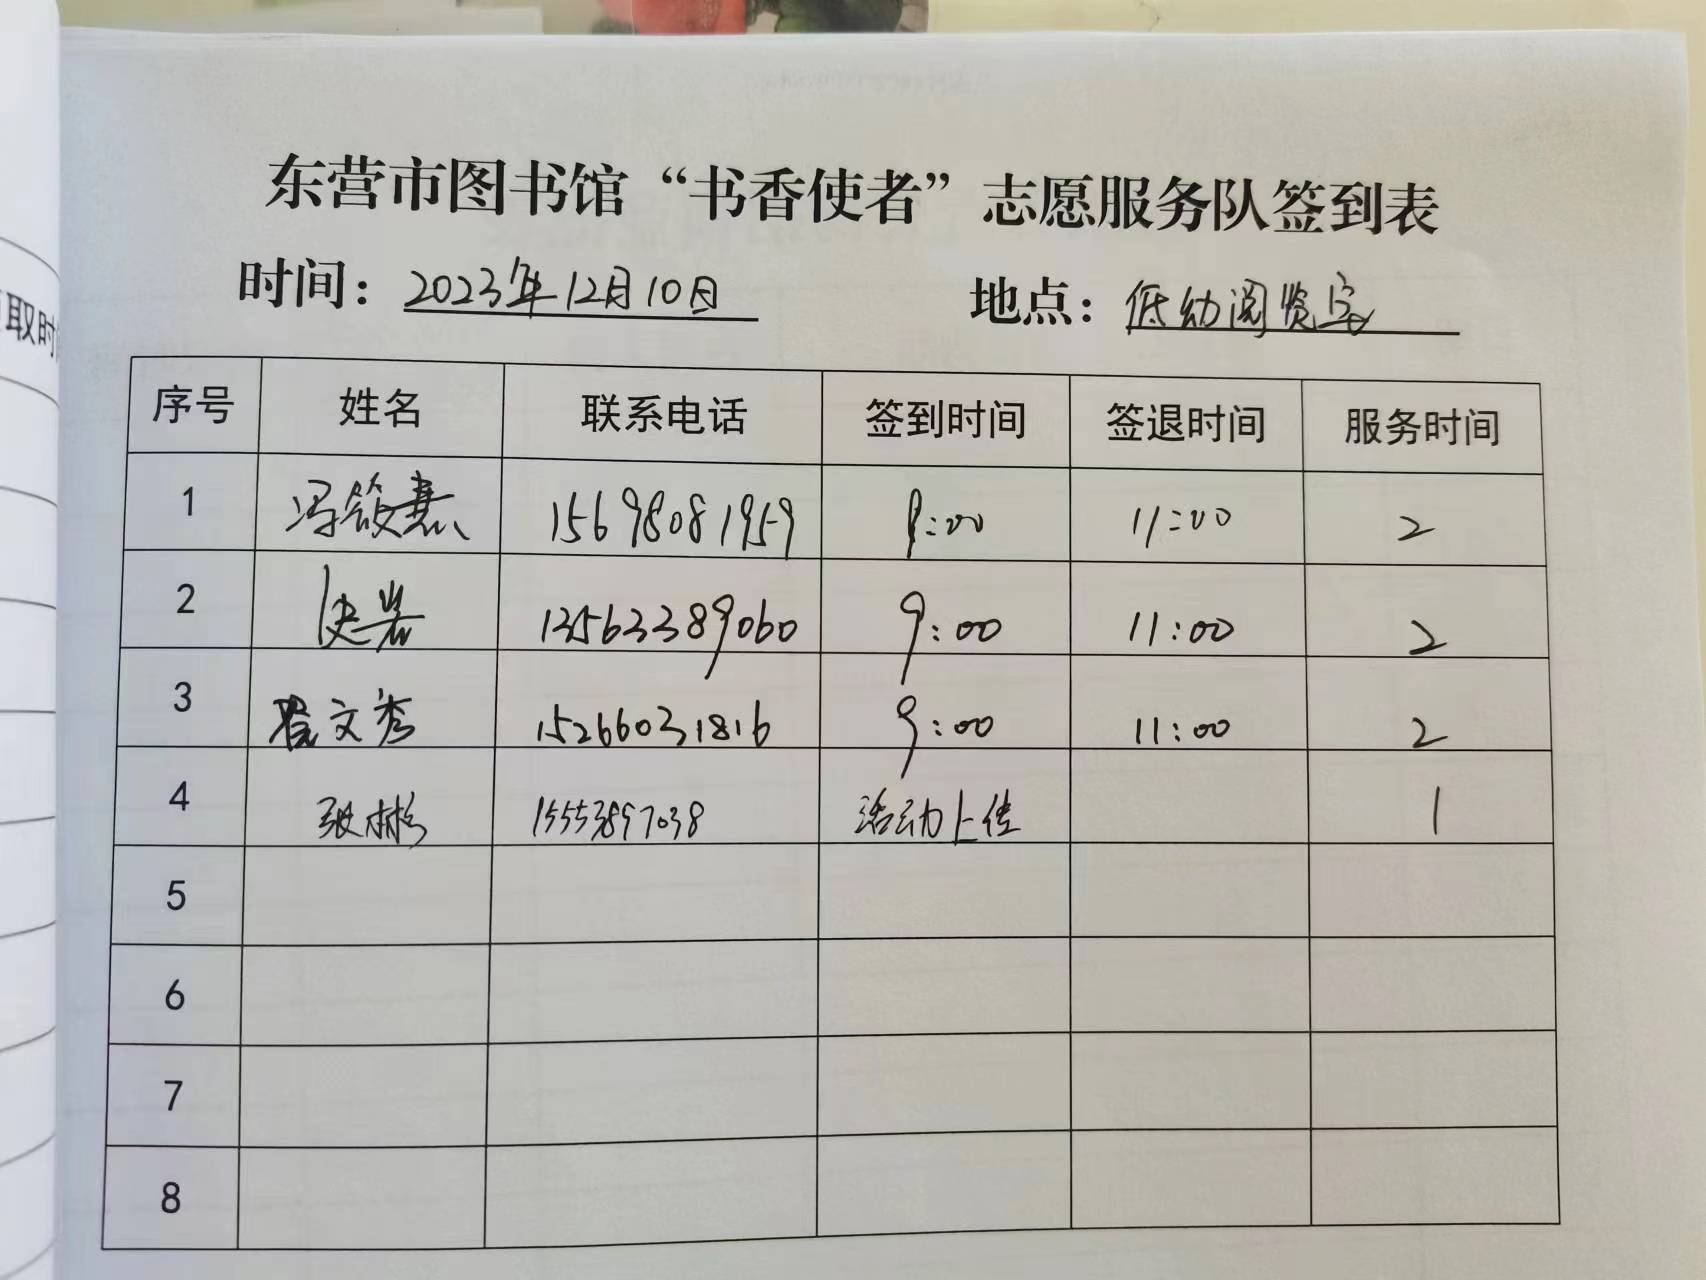 东营市图书馆“书香使者”志愿服务队签到表
时间：2023年12月10日 地点：低幼阅览室
序号 姓名 联系电话 签到时间 签退时间 服务时间
1 冯筱慧 15698081959 9:00 11:00 2
2 13563389060 9:00 11:00 2
3 文秀 15266031816 9:00 11:00 2
4 张彬 15553897038 活动上传 1
5
6
7
8
取时